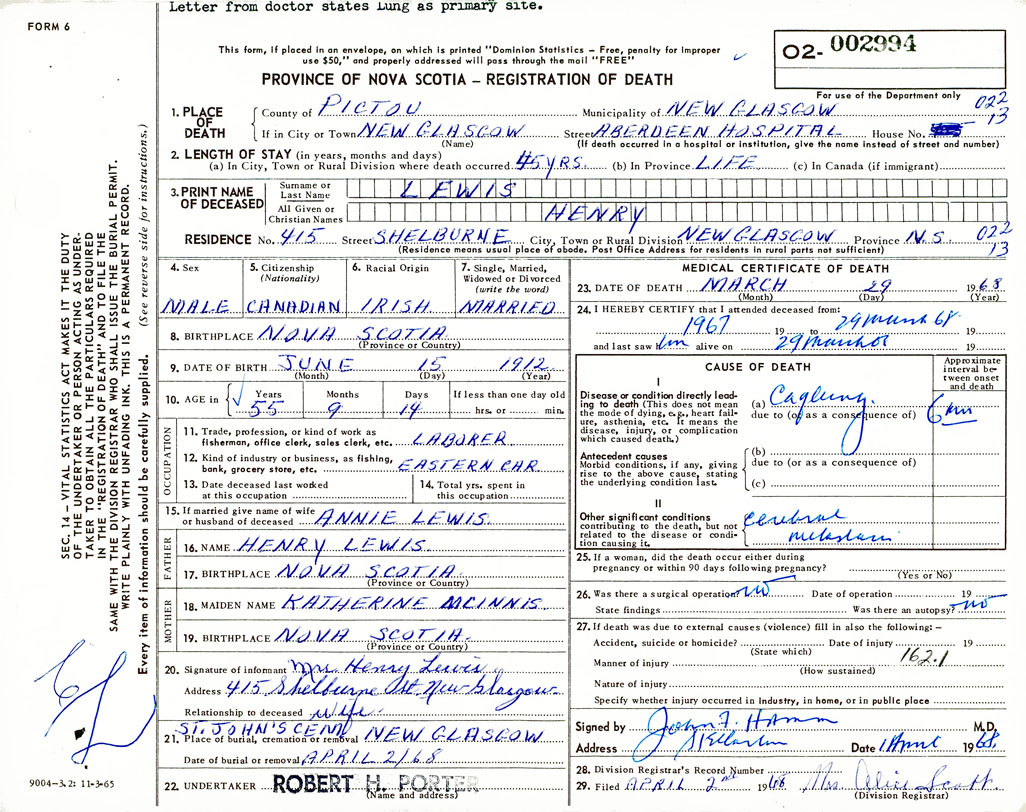 Letter from doctor states Lung as primary site.
FORM 6
This form, if placed in an envelope, on which is printed "Dominion Statistics – Free, penalty for improper
use $50," and properly addressed will pass through the mail "FREE"
O2- 002994
PROVINCE OF NOVA SCOTIA – REGISTRATION OF DEATH
For use of the Department only
022
13
1. PLACE OF DEATH
County of PICTOU Municipality of NEW GLASGOW
If in City or Town NEW GLASGOW Street ABERDEEN HOSPITAL House No.
(Name) (If death occurred in a hospital or institution, give the name instead of street and number)
2. LENGTH OF STAY (in years, months and days)
(a) In City, Town or Rural Division where death occurred 45 YRS. (b) In Province LIFE (c) In Canada (if immigrant)
3. PRINT NAME OF DECEASED
Surname or Last Name LEWIS
All Given or Christian Names HENRY
RESIDENCE No. 415 Street SHELBURNE City, Town or Rural Division NEW GLASGOW Province N.S. 022
13
(Residence means usual place of abode. Post Office Address for residents in rural parts not sufficient)
4. Sex 5. Citizenship (Nationality) 6. Racial Origin 7. Single, Married, Widowed or Divorced (write the word)
MALE CANADIAN IRISH MARRIED
8. BIRTHPLACE NOVA SCOTIA
(Province or Country)
9. DATE OF BIRTH JUNE 15 1912
(Month) (Day) (Year)
10. AGE in Years Months Days If less than one day old
55 9 14 hrs. or min.
OCCUPATION
11. Trade, profession, or kind of work as
fisherman, office clerk, sales clerk, etc. LABORER
12. Kind of industry or business, as fishing,
bank, grocery store, etc. EASTERN CAR
13. Date deceased last worked
at this occupation
14. Total yrs. spent in
this occupation
15. If married give name of wife
or husband of deceased ANNIE LEWIS
FATHER
16. NAME HENRY LEWIS
17. BIRTHPLACE NOVA SCOTIA
(Province or Country)
MOTHER
18. MAIDEN NAME KATHERINE MCINNIS
19. BIRTHPLACE NOVA SCOTIA
(Province or Country)
20. Signature of informant Mrs. Henry Lewis
Address 415 Shelburne St. New Glasgow
Relationship to deceased wife
ST. JOHN'S CEM
21. Place of burial, cremation or removal NEW GLASGOW
Date of burial or removal APRIL 2/68
22. UNDERTAKER ROBERT H. PORTER
(Name and address)
MEDICAL CERTIFICATE OF DEATH
23. DATE OF DEATH MARCH 29 1968
(Month) (Day) (Year)
24. I HEREBY CERTIFY that I attended deceased from:
1967 19 to 29 March 68 19
and last saw him alive on 29 March 68 19
CAUSE OF DEATH
Approximate interval between onset and death
I
Disease or condition directly leading to death (This does not mean the mode of dying, e.g., heart failure, asthenia, etc. It means the disease, injury, or complication which caused death.)
(a) Ca lung
due to (or as a consequence of)
Antecedent causes
Morbid conditions, if any, giving rise to the above cause, stating the underlying condition last.
(b)
due to (or as a consequence of)
(c)
II
Other significant conditions
contributing to the death, but not related to the disease or condition causing it.
cerebral
metastasis
25. If a woman, did the death occur either during
pregnancy or within 90 days following pregnancy?
(Yes or No)
26. Was there a surgical operation? no Date of operation 19
State findings Was there an autopsy? no
27. If death was due to external causes (violence) fill in also the following: –
Accident, suicide or homicide? Date of injury 19
(State which)
162.1
Manner of injury
(How sustained)
Nature of injury
Specify whether injury occurred in industry, in home, or in public place
Signed by John F. Hamm M.D.
Address Stellarton Date 1 April 1968
28. Division Registrar's Record Number
29. Filed APRIL 2nd 1968 Mrs. Alice Scott
(Division Registrar)
SEC. 14 – VITAL STATISTICS ACT MAKES IT THE DUTY
OF THE UNDERTAKER OR PERSON ACTING AS UNDER-
TAKER TO OBTAIN ALL THE PARTICULARS REQUIRED
IN THE "REGISTRATION OF DEATH" AND TO FILE THE
SAME WITH THE DIVISION REGISTRAR WHO SHALL ISSUE THE BURIAL PERMIT.
WRITE PLAINLY WITH UNFADING INK. THIS IS A PERMANENT RECORD.
Every item of information should be carefully supplied. (See reverse side for instructions.)
9004–3.2: 11-3-65